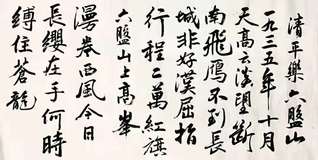 清平樂六盤山
一九三五年十月
天高雲淡望斷
南飛雁不到長
城非好漢屈指
行程二萬紅旗
六盤山上高峯
漫卷西風今日
長纓在手何時
縛住蒼龍